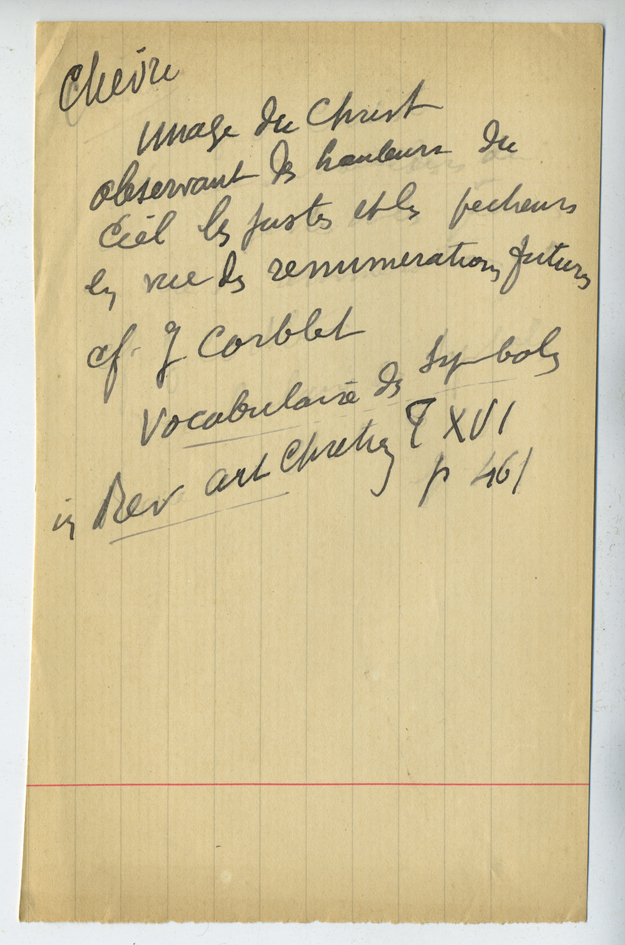 Chèvre
Image du Christ
observant des hauteurs du
Ciel les justes et les pecheurs
en vue des remumerations futures
cf. J Corblet
Vocabulaire des Symboles
in Rev art Chretien T XVI
p 461